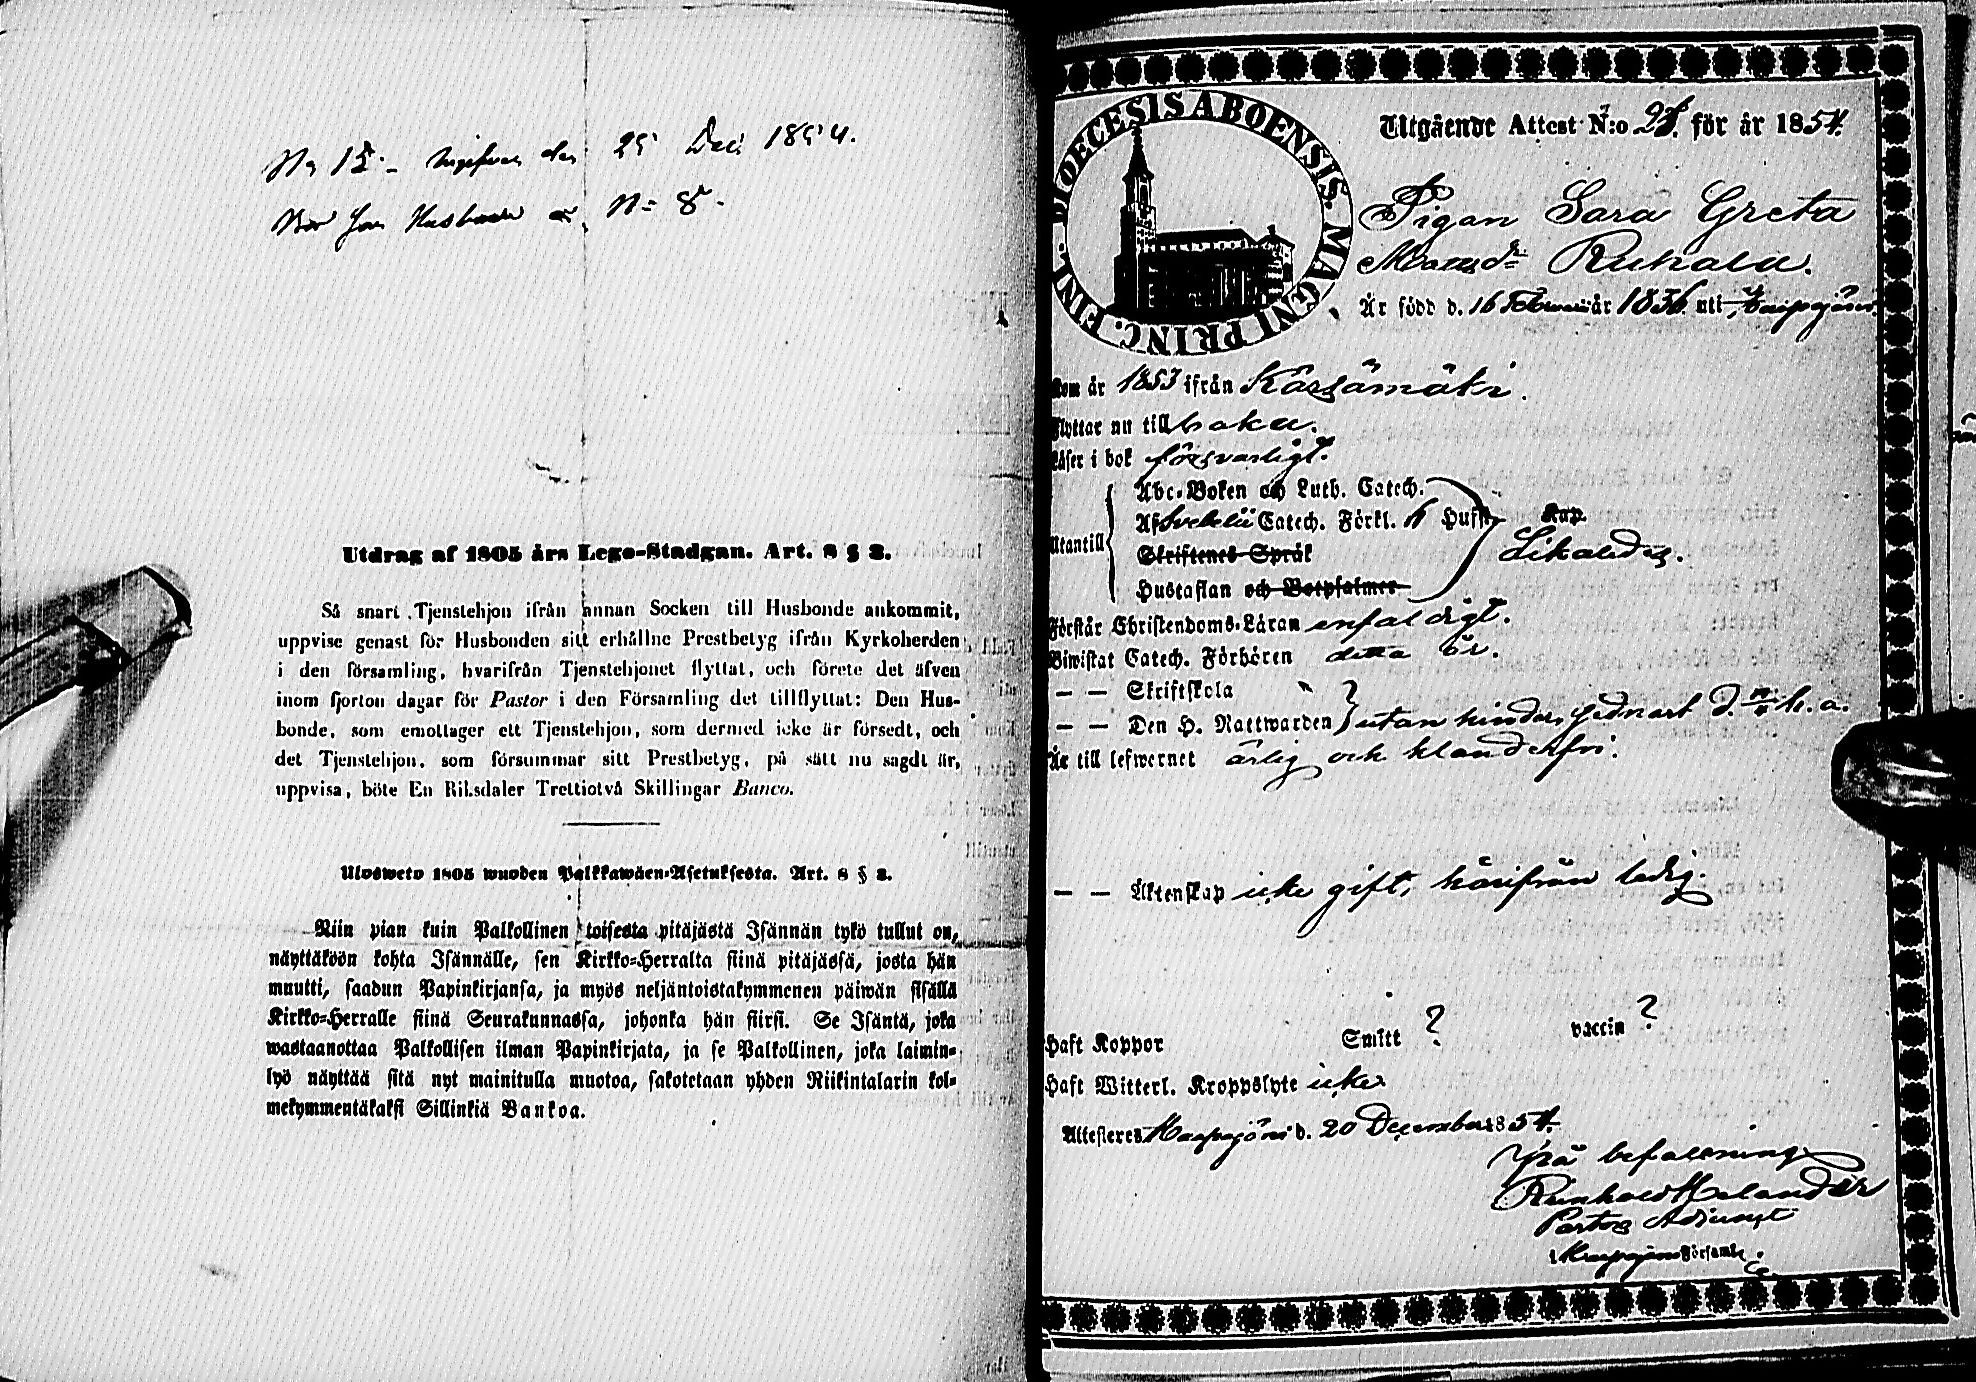 No 15. den 25 Dec. 1854.
Husbonde N= 8.
Utdrag af 1805 års Lego-Stadgan. Art. 8 § 3.
Så snart Tjenstehjon ifrån annan Socken till Husbonde ankommit,
uppvise genast för Husbonden sitt erhållne Prestbetyg ifrån Kyrkoherden
i den församling, hvarifrån Tjenstehjonet flyttat, och förete det äfven
inom fjorton dagar för Pastor i den Församling det tillflyttat: Den Hus-
bonde, som emottager ett Tjenstehjon, som dermed icke är försedt, och
det Tjenstehjon, som försummar sitt Prestbetyg, på sätt nu sagdt är,
uppvisa, böte En Riksdaler Trettiotvå Skillingar Banco.
Ulosweto 1805 wuoden Palkkawäen-Asetuksesta. Art. 8 § 3.
Niin pian kuin Palkollinen toisesta pitäjästä Isännän tykö tullut on,
näyttäköön kohta Isännälle, sen Kirkko-Herralta siinä pitäjässä, josta hän
muutti, saadun Papinkirjansa, ja myös neljäntoistakymmenen päiwän sisällä
Kirkko-Herralle siinä Seurakunnassa, johonka hän siirsi. Se Isäntä, joka
wastaanottaa Palkollisen ilman Papinkirjata, ja se Palkollinen, joka laimin-
lyö näyttää sitä nyt mainitulla muotoa, sakotetaan yhden Riikintalarin kol-
mekymmentäkaksi Sillinkiä Bankoa.
DIOECESIS ABOENSIS. MAGNI PRINC. FINL.
Utgående Attest N:o 28. för år 1854.
Pigan Sara Greta
Matsdr Ruhala.
Är född d. 16 Februari år 1836 uti Haapajärvi
Kom år 1853 ifrån Kärsämäki.
Flyttar nu tillbaka.
Läser i bok försvarligt.
Abc-Boken och Luth. Catech.
Af Svebelii Catech. Förkl. Hufst. Kap.
Utantill Likaledes.
Skriftenes Språk
Hustaflan och Botpsalmer
Förstår Christendoms-Läran enfaldigt.
Biwistat Catech. Förhören detta år.
— — Skriftskola
— — Den H. Nattwarden utan hinder, sednast d. h. a.
Är till lefwernet ärlig och klanderfri.
— — Äktenskap icke gift, härifrån ledig.
Haft Koppor Smitt ? vaccin ?
Haft Witterl. Kroppslyte icke
Attesteres Haapajärvi d. 20 December 1854.
På befallning
Reinhold Helander
Pastors Adjunct
i Haapajärvi Församl.